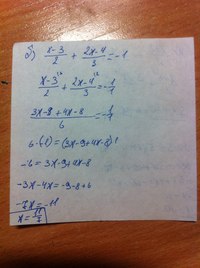 б) x-3/2 + 2x-4/3 = -1
x-3/2 + 2x-4/3 = -1/1
3x-9+4x-8/6 = -1/1
6·(-1) = (3x-9+4x-8)·1
-6 = 3x-9+4x-8
-3x-4x = -9-8+6
-7x = -11
x = 11/7